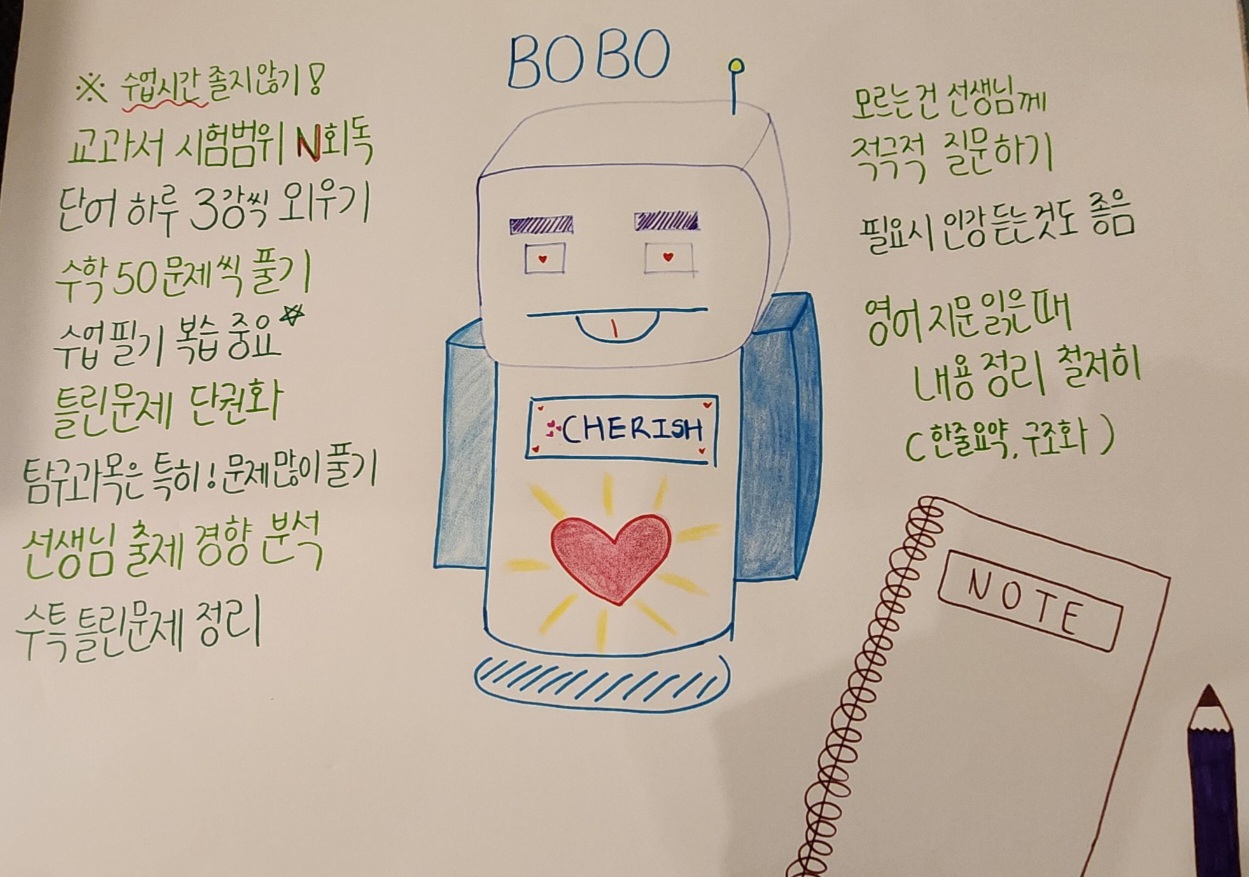 BOBO
※ 수업시간 졸지않기!
교과서 시험범위 N회독
단어 하루 3강씩 외우기
수학 50문제씩 풀기
수업 필기 복습 중요☆
틀린문제 단권화
탐구과목은 특히! 문제 많이 풀기
선생님 출제 경향 분석
수특 틀린문제 정리
CHERISH
모르는건 선생님께
적극적 질문하기
필요시 인강 듣는것도 좋음
영어 지문 읽은때
내용 정리 철저히
(한줄요약, 구조화)
NOTE